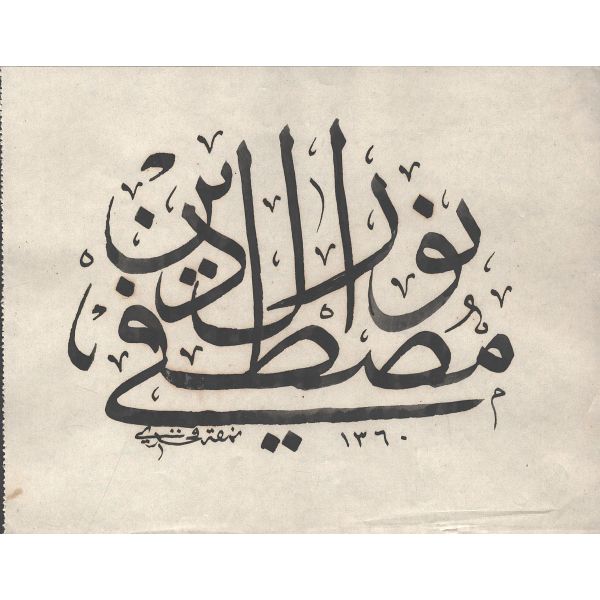 نور الدين
مصطفى
١٣٦٠